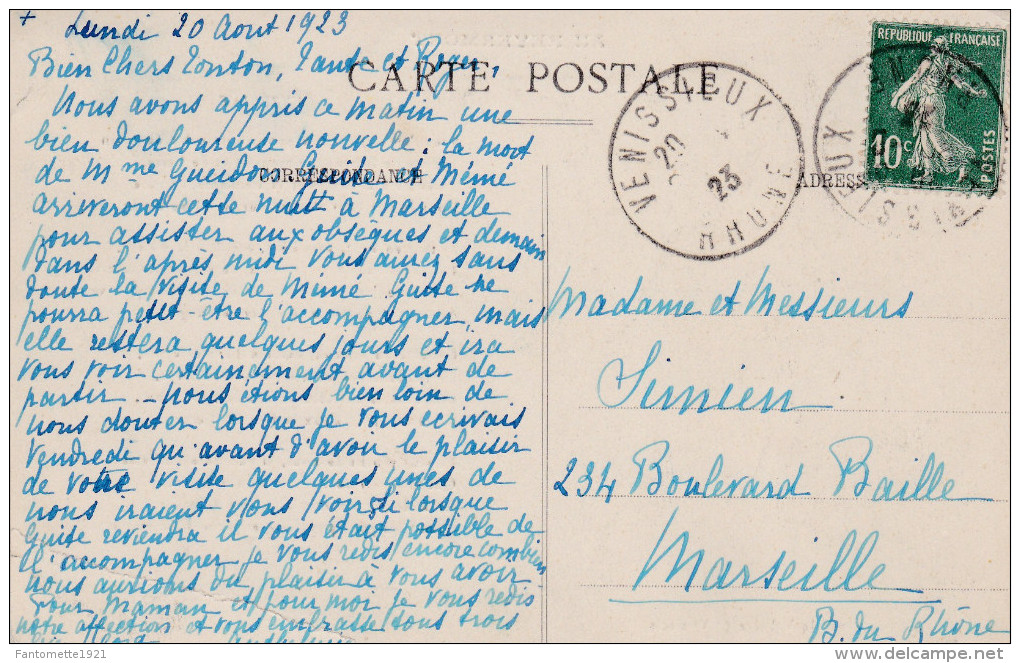 Lundi 20 Aout 1923
Bien Chers Tonton, Tante et Roger,
CARTE POSTALE
Nous avons appris ce matin une
bien douloureuse nouvelle : la mort
de Mme Guidon. Guite et Mémé
CORRESPONDANCE
arriveront cette nuit à Marseille
pour assister aux obsèques et demain
dans l'après midi vous aurez sans
doute la visite de Mémé. Guite ne
pourra petit-être l'accompagner, mais
elle restera quelques jours et ira
vous voir certainement avant de
partir - nous étions bien loin de
nous douter lorsque je vous ecrivais
Vendredi qu'avant d'avoir le plaisir
de votre visite quelques unes de
nous iraient vous voir. Si lorsque
Guite reviendra il vous était possible de
l'accompagner je vous redis encore combien
nous aurions du plaisir à vous avoir
Pour Maman et pour moi je vous redis
notre affection et vous embrasse tous trois
REPUBLIQUE FRANÇAISE
10c
POSTES
VENISSIEUX
20
23
RHONE
ADRESSE
Madame et Messieurs
Simien
234 Boulevard Baille
Marseille
B. du Rhône
Fantomette1921
delcampe.net